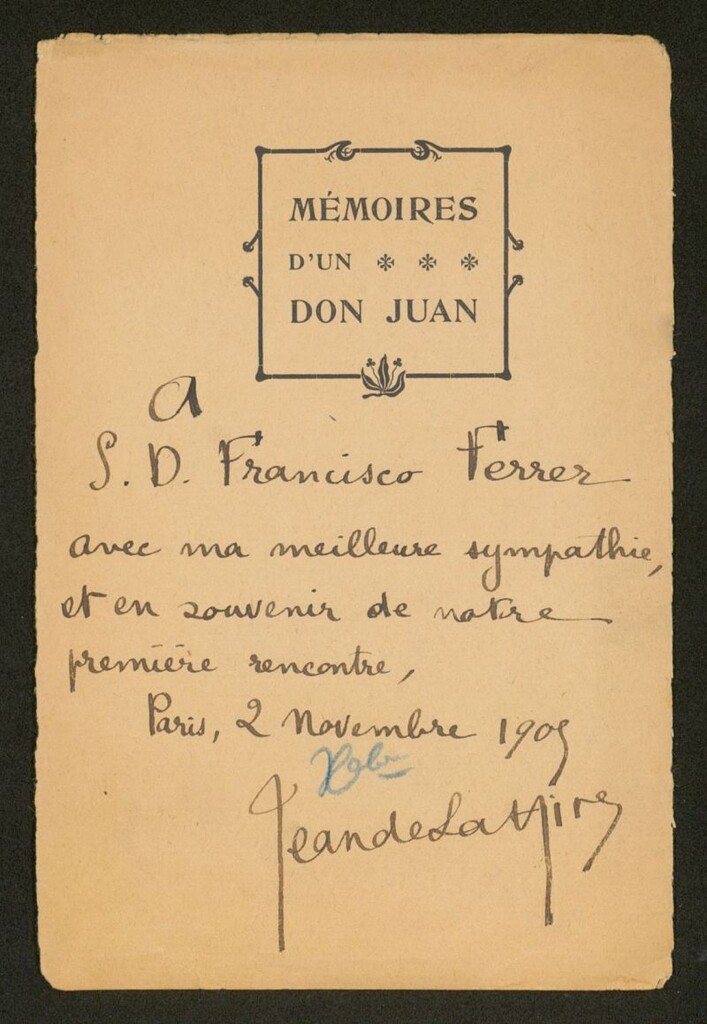 MÉMOIRES
D'UN * * *
DON JUAN
A
S. D. Francisco Ferrer
avec ma meilleure sympathie,
et en souvenir de notre
première rencontre,
Paris, 2 Novembre 1905
Jean de La Hire